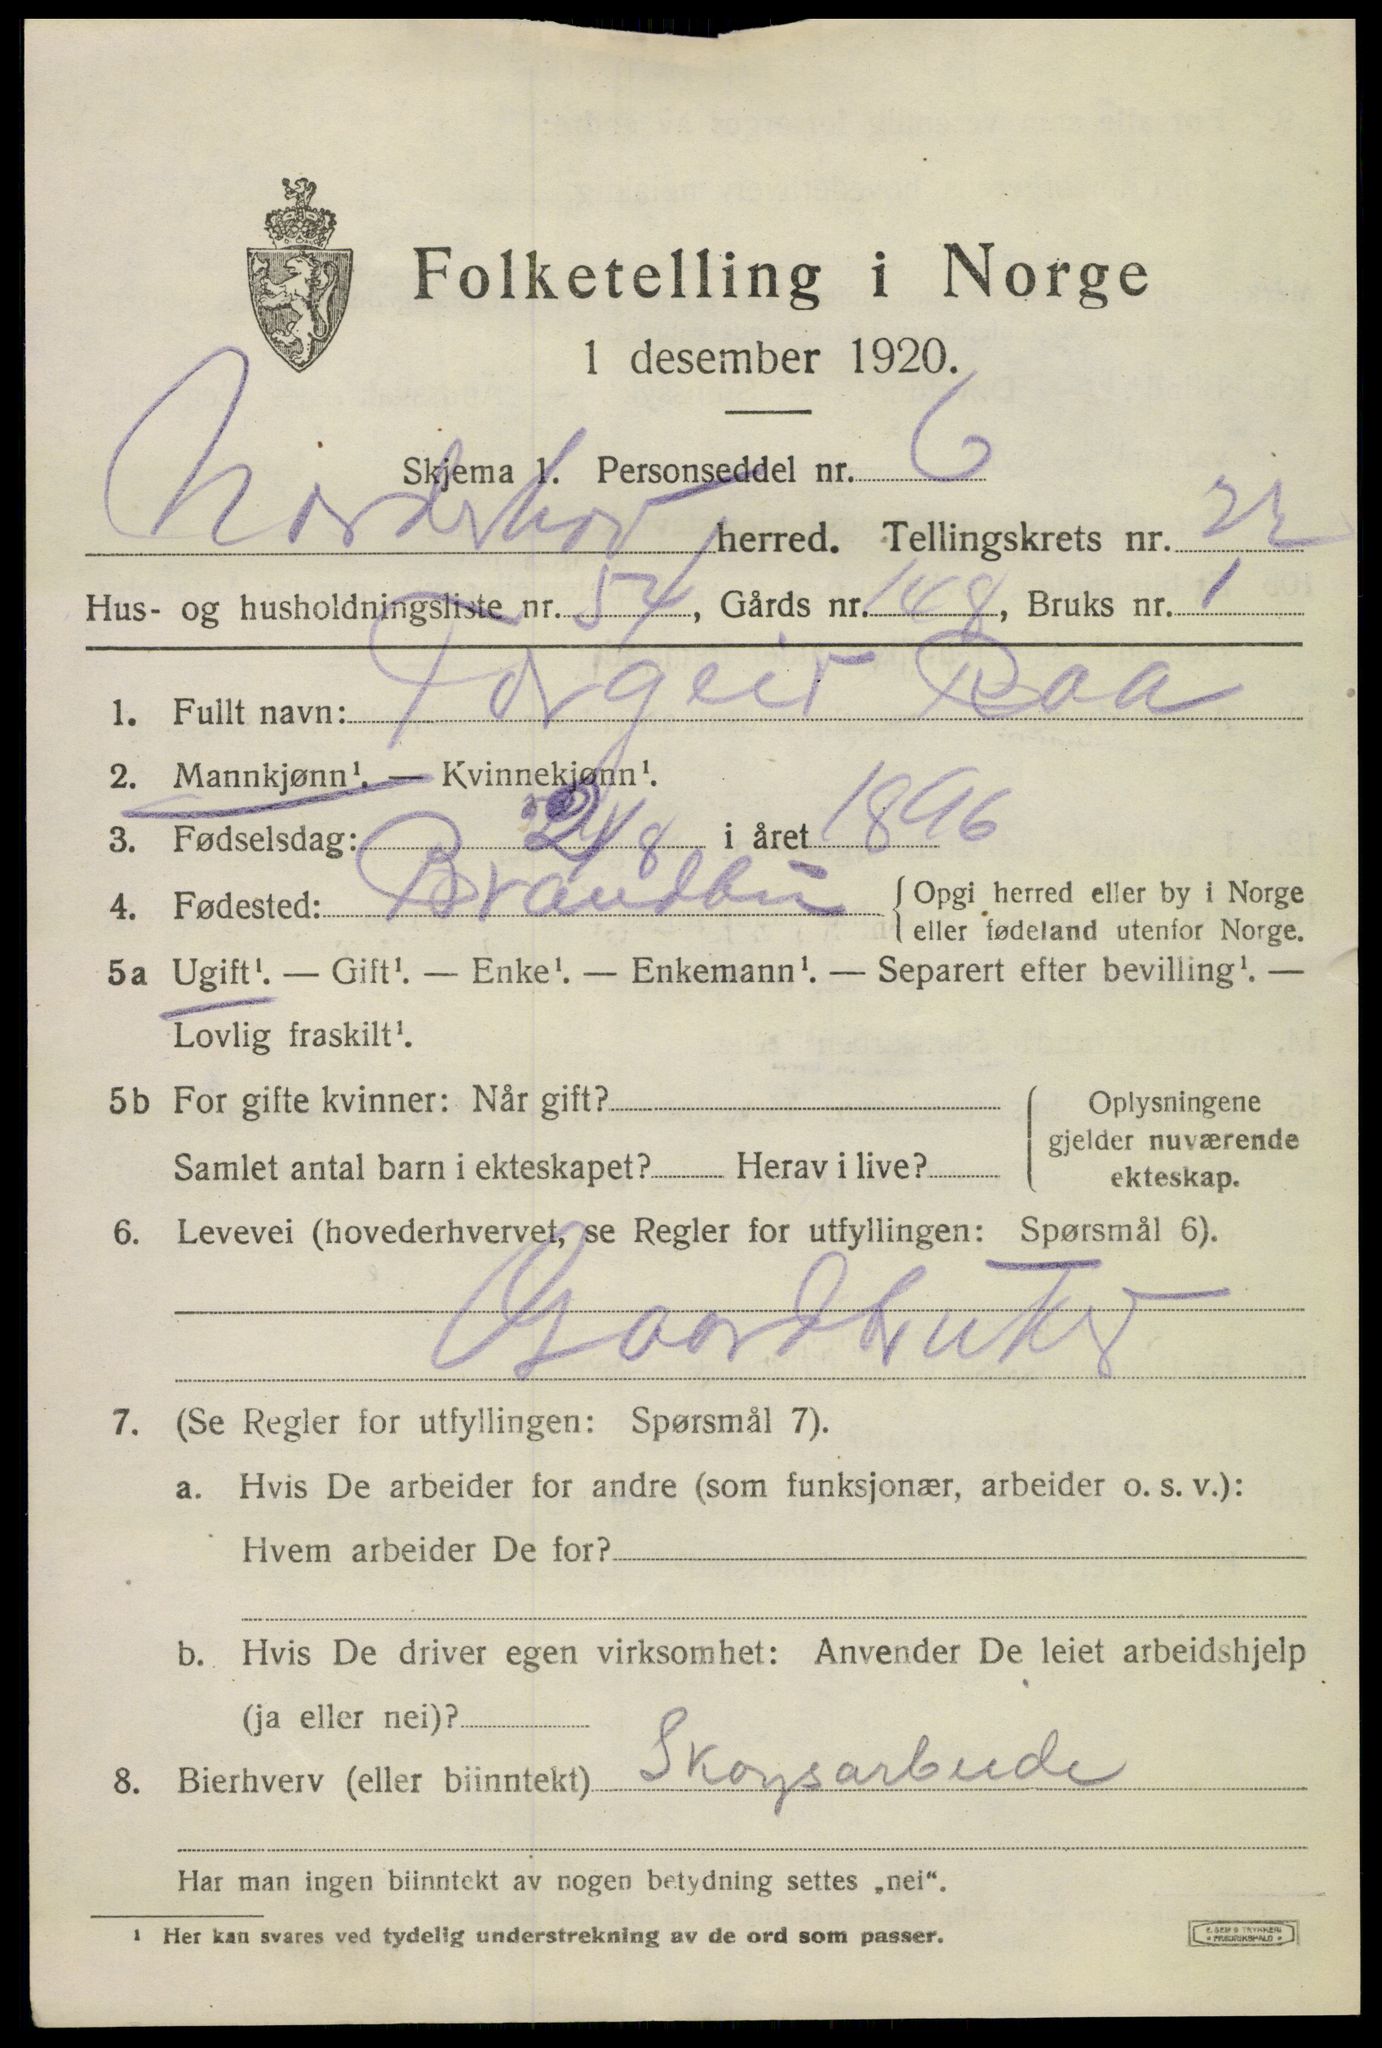 Folketelling i Norge
1 desember 1920.
Skjema 1. Personseddel nr. 6
Norderhov herred. Tellingskrets nr. 22
Hus- og husholdningsliste nr. 54, Gårds nr. 148, Bruks nr. 1
1. Fullt navn: Torgeir Raa
2. Mannkjønn¹. — Kvinnekjønn¹.
3. Fødselsdag: 24/8 i året 1896
4. Fødested: Brandbu { Opgi herred eller by i Norge
eller fødeland utenfor Norge.
5a Ugift¹. — Gift¹. — Enke¹. — Enkemann¹. — Separert efter bevilling¹. —
Lovlig fraskilt¹.
5b For gifte kvinner: Når gift?
Samlet antal barn i ekteskapet? Herav i live?
Oplysningene
gjelder nuværende
ekteskap.
6. Levevei (hovederhvervet, se Regler for utfyllingen: Spørsmål 6).
Gaardbruker
7. (Se Regler for utfyllingen: Spørsmål 7).
a. Hvis De arbeider for andre (som funksjonær, arbeider o. s. v.):
Hvem arbeider De for?
b. Hvis De driver egen virksomhet: Anvender De leiet arbeidshjelp
(ja eller nei)?
8. Bierhverv (eller biinntekt) Skogsarbeide
Har man ingen biinntekt av nogen betydning settes „nei“.
¹ Her kan svares ved tydelig understrekning av de ord som passer.